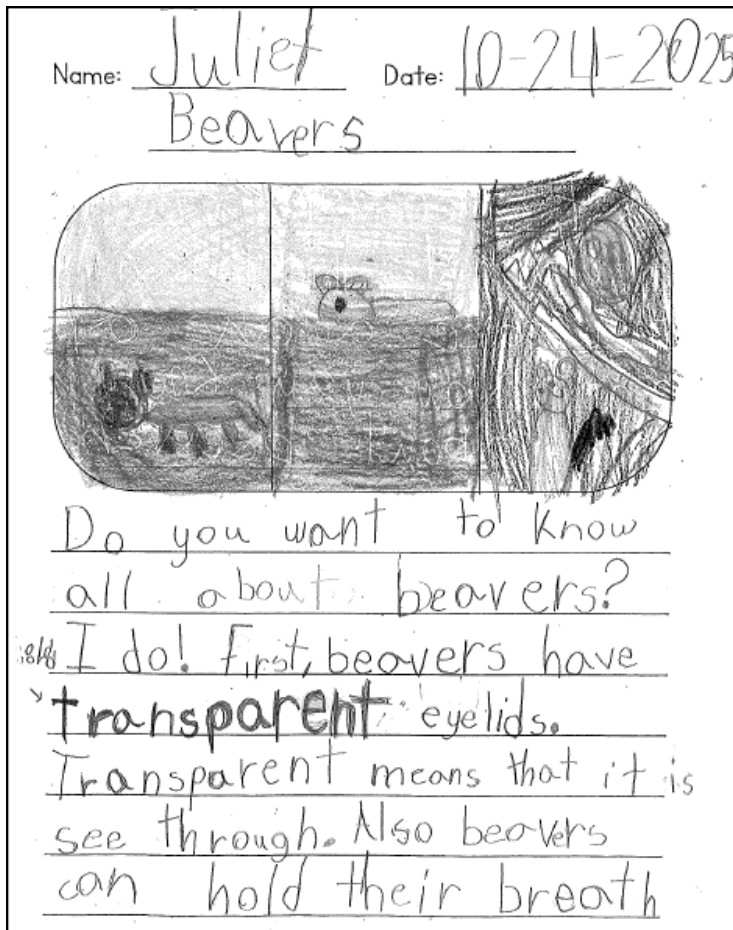 Name: Juliet Date: 10-24-2025
Beavers
Do you want to know
all about beavers?
I do! First, beavers have
transparent eyelids.
Transparent means that it is
see through. Also beavers
can hold their breath